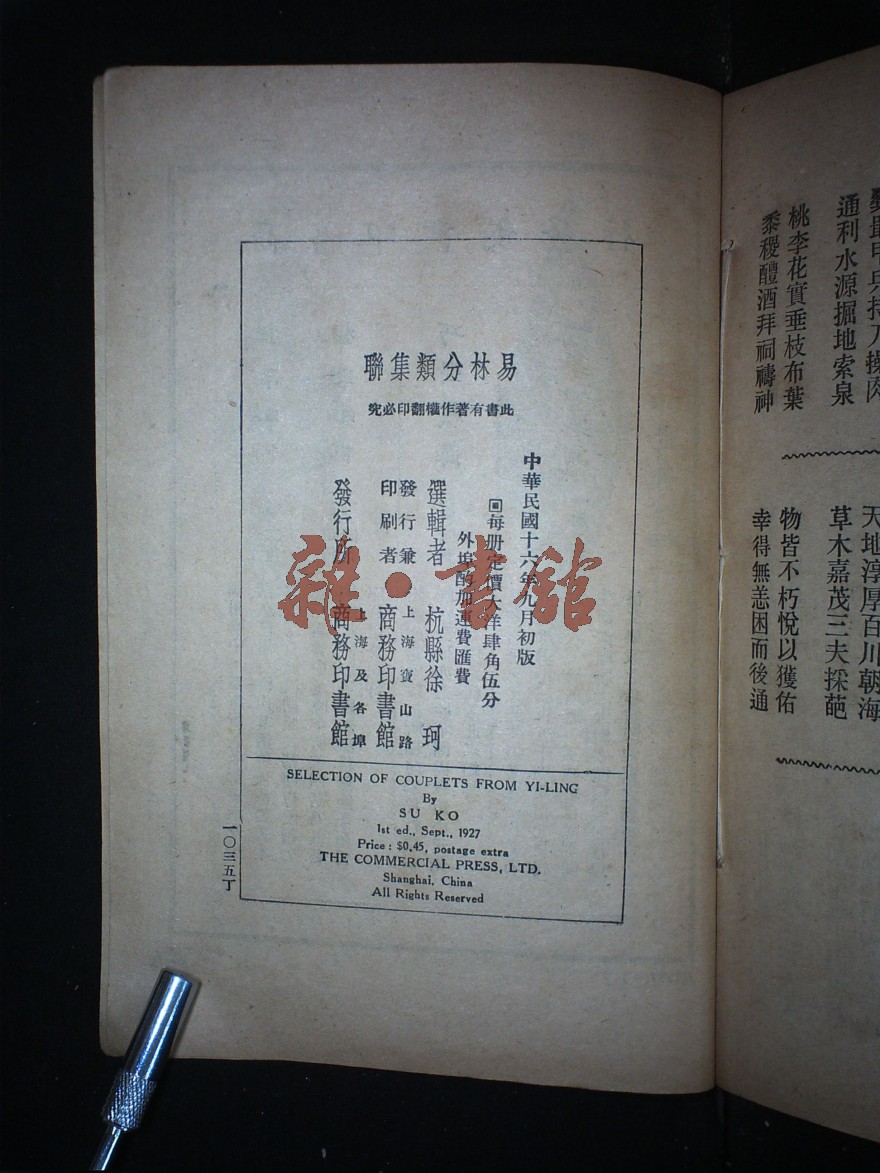 通利水源掘地索泉
桃李花實垂枝布葉
黍稷醴酒拜祠禱神
天地淳厚百川朝海
草木嘉茂三夫採葩
物皆不朽悅以獲佑
幸得無恙困而後通
易林分類集聯
此書有著作權翻印必究
中華民國十六年九月初版
每册定價大洋肆角伍分
外埠酌加運費匯費
選輯者 杭縣徐珂
發行兼
印刷者
上海寶山路
商務印書館
發行所
上海及各埠
商務印書館
SELECTION OF COUPLETS FROM YI-LING
By
SU KO
1st ed., Sept., 1927
Price : $0.45, postage extra
THE COMMERCIAL PRESS, LTD.
Shanghai, China
All Rights Reserved
一〇三五丁
雜·書舘